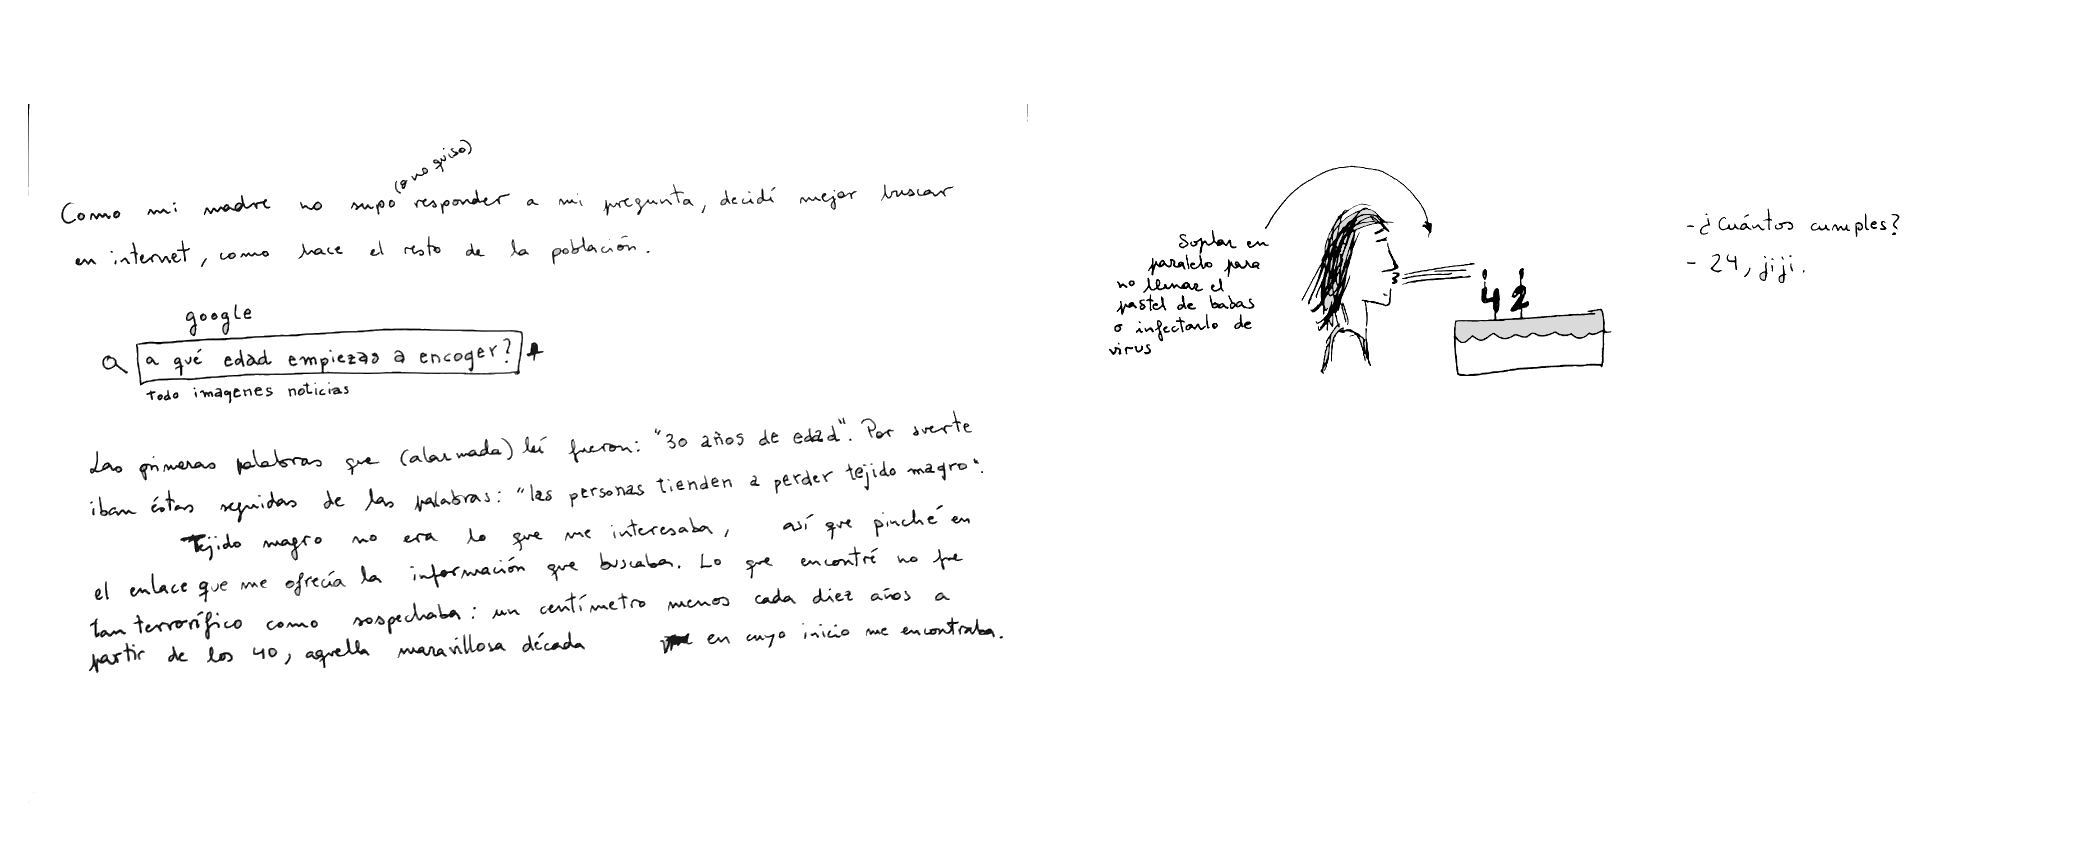 Como mi madre no supo (o no quiso) responder a mi pregunta, decidí mejor buscar
en internet, como hace el resto de la población.
google
a qué edad empiezas a encoger?
todo imagenes noticias
Las primeras palabras que (alarmada) leí fueron: "30 años de edad". Por suerte
iban éstas seguidas de las palabras: "las personas tienden a perder tejido magro".
Tejido magro no era lo que me interesaba, así que pinché en
el enlace que me ofrecía la información que buscaba. Lo que encontré no fue
tan terrorífico como sospechaba: un centímetro menos cada diez años a
partir de los 40, aquella maravillosa década en cuyo inicio me encontraba.
Soplar en
paralelo para
no llenar el
pastel de babas
o infectarlo de
virus
42
- ¿Cuántos cumples?
- 24, jiji.